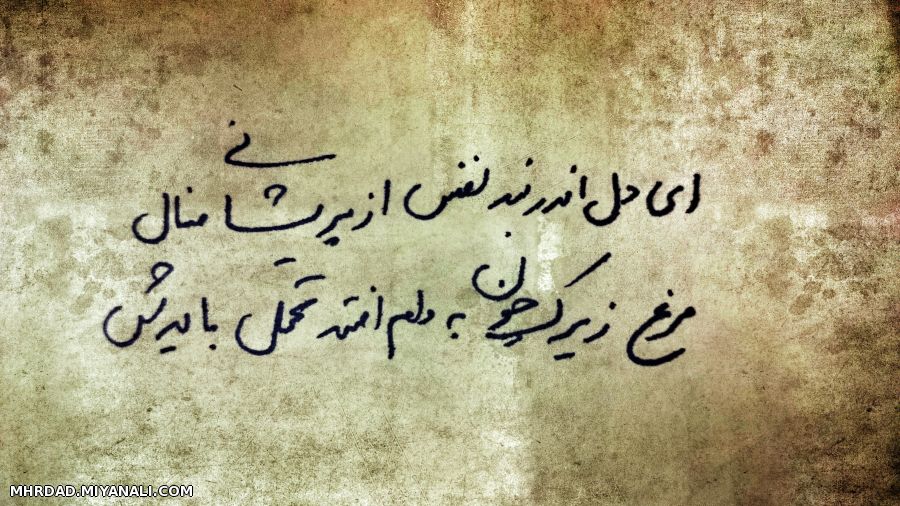 ای دل اندر بند نفس از پریشانی منال
مرغ زیرک چون به دام افتد تحمل بایدش
MHRDAD.MIYANALI.COM